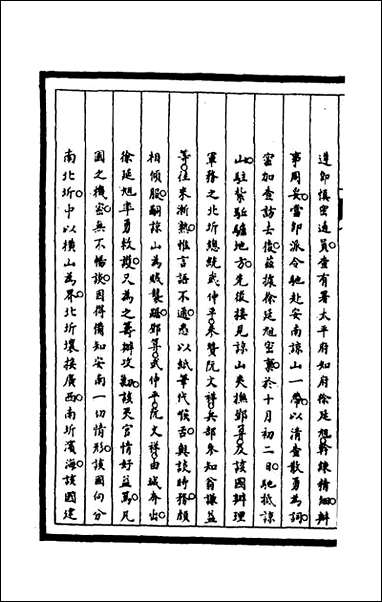 遵卽慎密遴員查有署太平府知府徐延旭幹練精細辦
事周妥當卽派令馳赴安南諒山一帶以清查散勇為詞
密加查訪去後茲據徐延旭密稟於十月初二日馳抵諒
山駐紮駈驢地方先後接見諒山夷撫鄧算及該國辦理
軍務之北圻總統武仲平叅贊阮文祥兵部參知翁謙益
等往來漸熟惟言語不通悉以紙筆代喉舌與談時務頗
相傾服嗣諒山為賊襲踞鄧算武仲平阮文祥由城奔出
徐延旭率勇救護又為之籌辦攻勦該夷官情好益篤凡
國之機密無不暢談因得備知安南一切情形該國向分
南北圻中以橫山為界北圻壤接廣西南圻濱海該國建